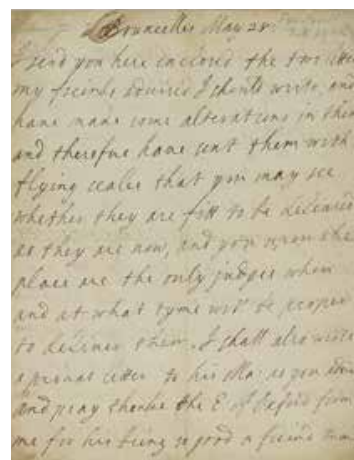 Bruxcelles May 28:
I send you here inclosed the two letters
my freinds desired I should write, and
have made some alterations in them
and therefore have sent them with
flying seales that you may see
whether they are fitt to be delivered
as they are now, and you upon the
place are the only judges when
and at what tyme will be proper
to deliver them. I shall also write
a privat letter to his Ma: as you
and pray thanke the E of from
me for his being so good a freind